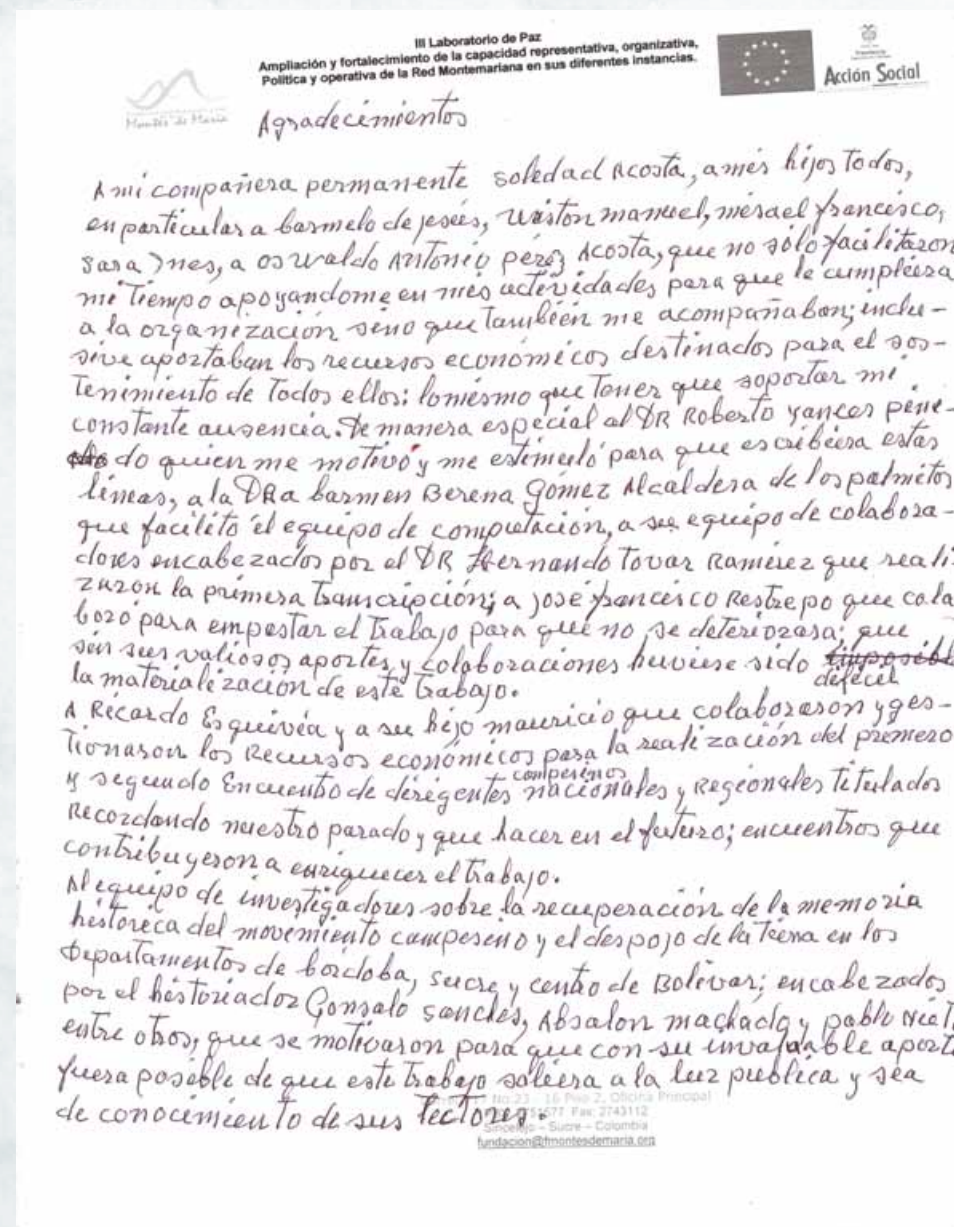 III Laboratorio de Paz
Ampliación y fortalecimiento de la capacidad representativa, organizativa,
Política y operativa de la Red Montemariana en sus diferentes instancias.
Acción Social
Montes de María
Agradecimientos
A mi compañera permanente soledad Acosta, a mis hijos Todos,
en particular a Carmelo de jesús, Wiston manuel, misael francisco,
Sara Ines, a oswaldo Antonio pérez Acosta, que no sólo facilitaron
mi Tiempo apoyandome en mis actividades para que le cumpliera
a la organización sino que también me acompañaban; inclu-
sive aportaban los recursos económicos destinados para el sos-
tenimiento de Todos ellos; lo mismo que Tener que soportar mi
constante ausencia. De manera especial al DR Roberto yances pine-
do quien me motivó y me estimuló para que escribiera estas
líneas, a la DRa Carmen Berena Gómez Alcaldesa de los palmitos
que facilito el equipo de computación, a su equipo de colabora-
dores encabezados por el DR Hernando Tovar Ramirez que reali-
zaron la primera transcripción; a José francisco Restrepo que cola
boró para empastar el Trabajo para que no se deteriorara; que
sin sus valiosos aportes y colaboraciones huviese sido
difícil
la materialización de este Trabajo.
A Ricardo Esquivia y a su hijo mauricio que colaboraron y ges-
Tionaron los Recursos económicos para la realización del primero
campesinos
y segundo Encuentro de dirigentes nacionales y Regionales Titulados
Recordando nuestro pasado y que hacer en el futuro; encuentros que
contribuyeron a enriquecer el trabajo.
Al equipo de investigadores sobre la recuperación de la memoria
historica del movimiento campesino y el despojo de la tierra en los
Departamentos de Córdoba, sucre y centro de Bolívar; encabezados
por el historiador Gonsalo Sanches, Absalon machado y pablo
entre otros, que se motivaron para que con su invaluable
fuera posible de que este trabajo saliera a la luz publica y sea
de conocimiento de sus lectores.
No.23 - 16 Piso 2, Oficina Principal
Fax: 2743112
Sincelejo – Sucre – Colombia
fundacion@fmontesdemaria.org